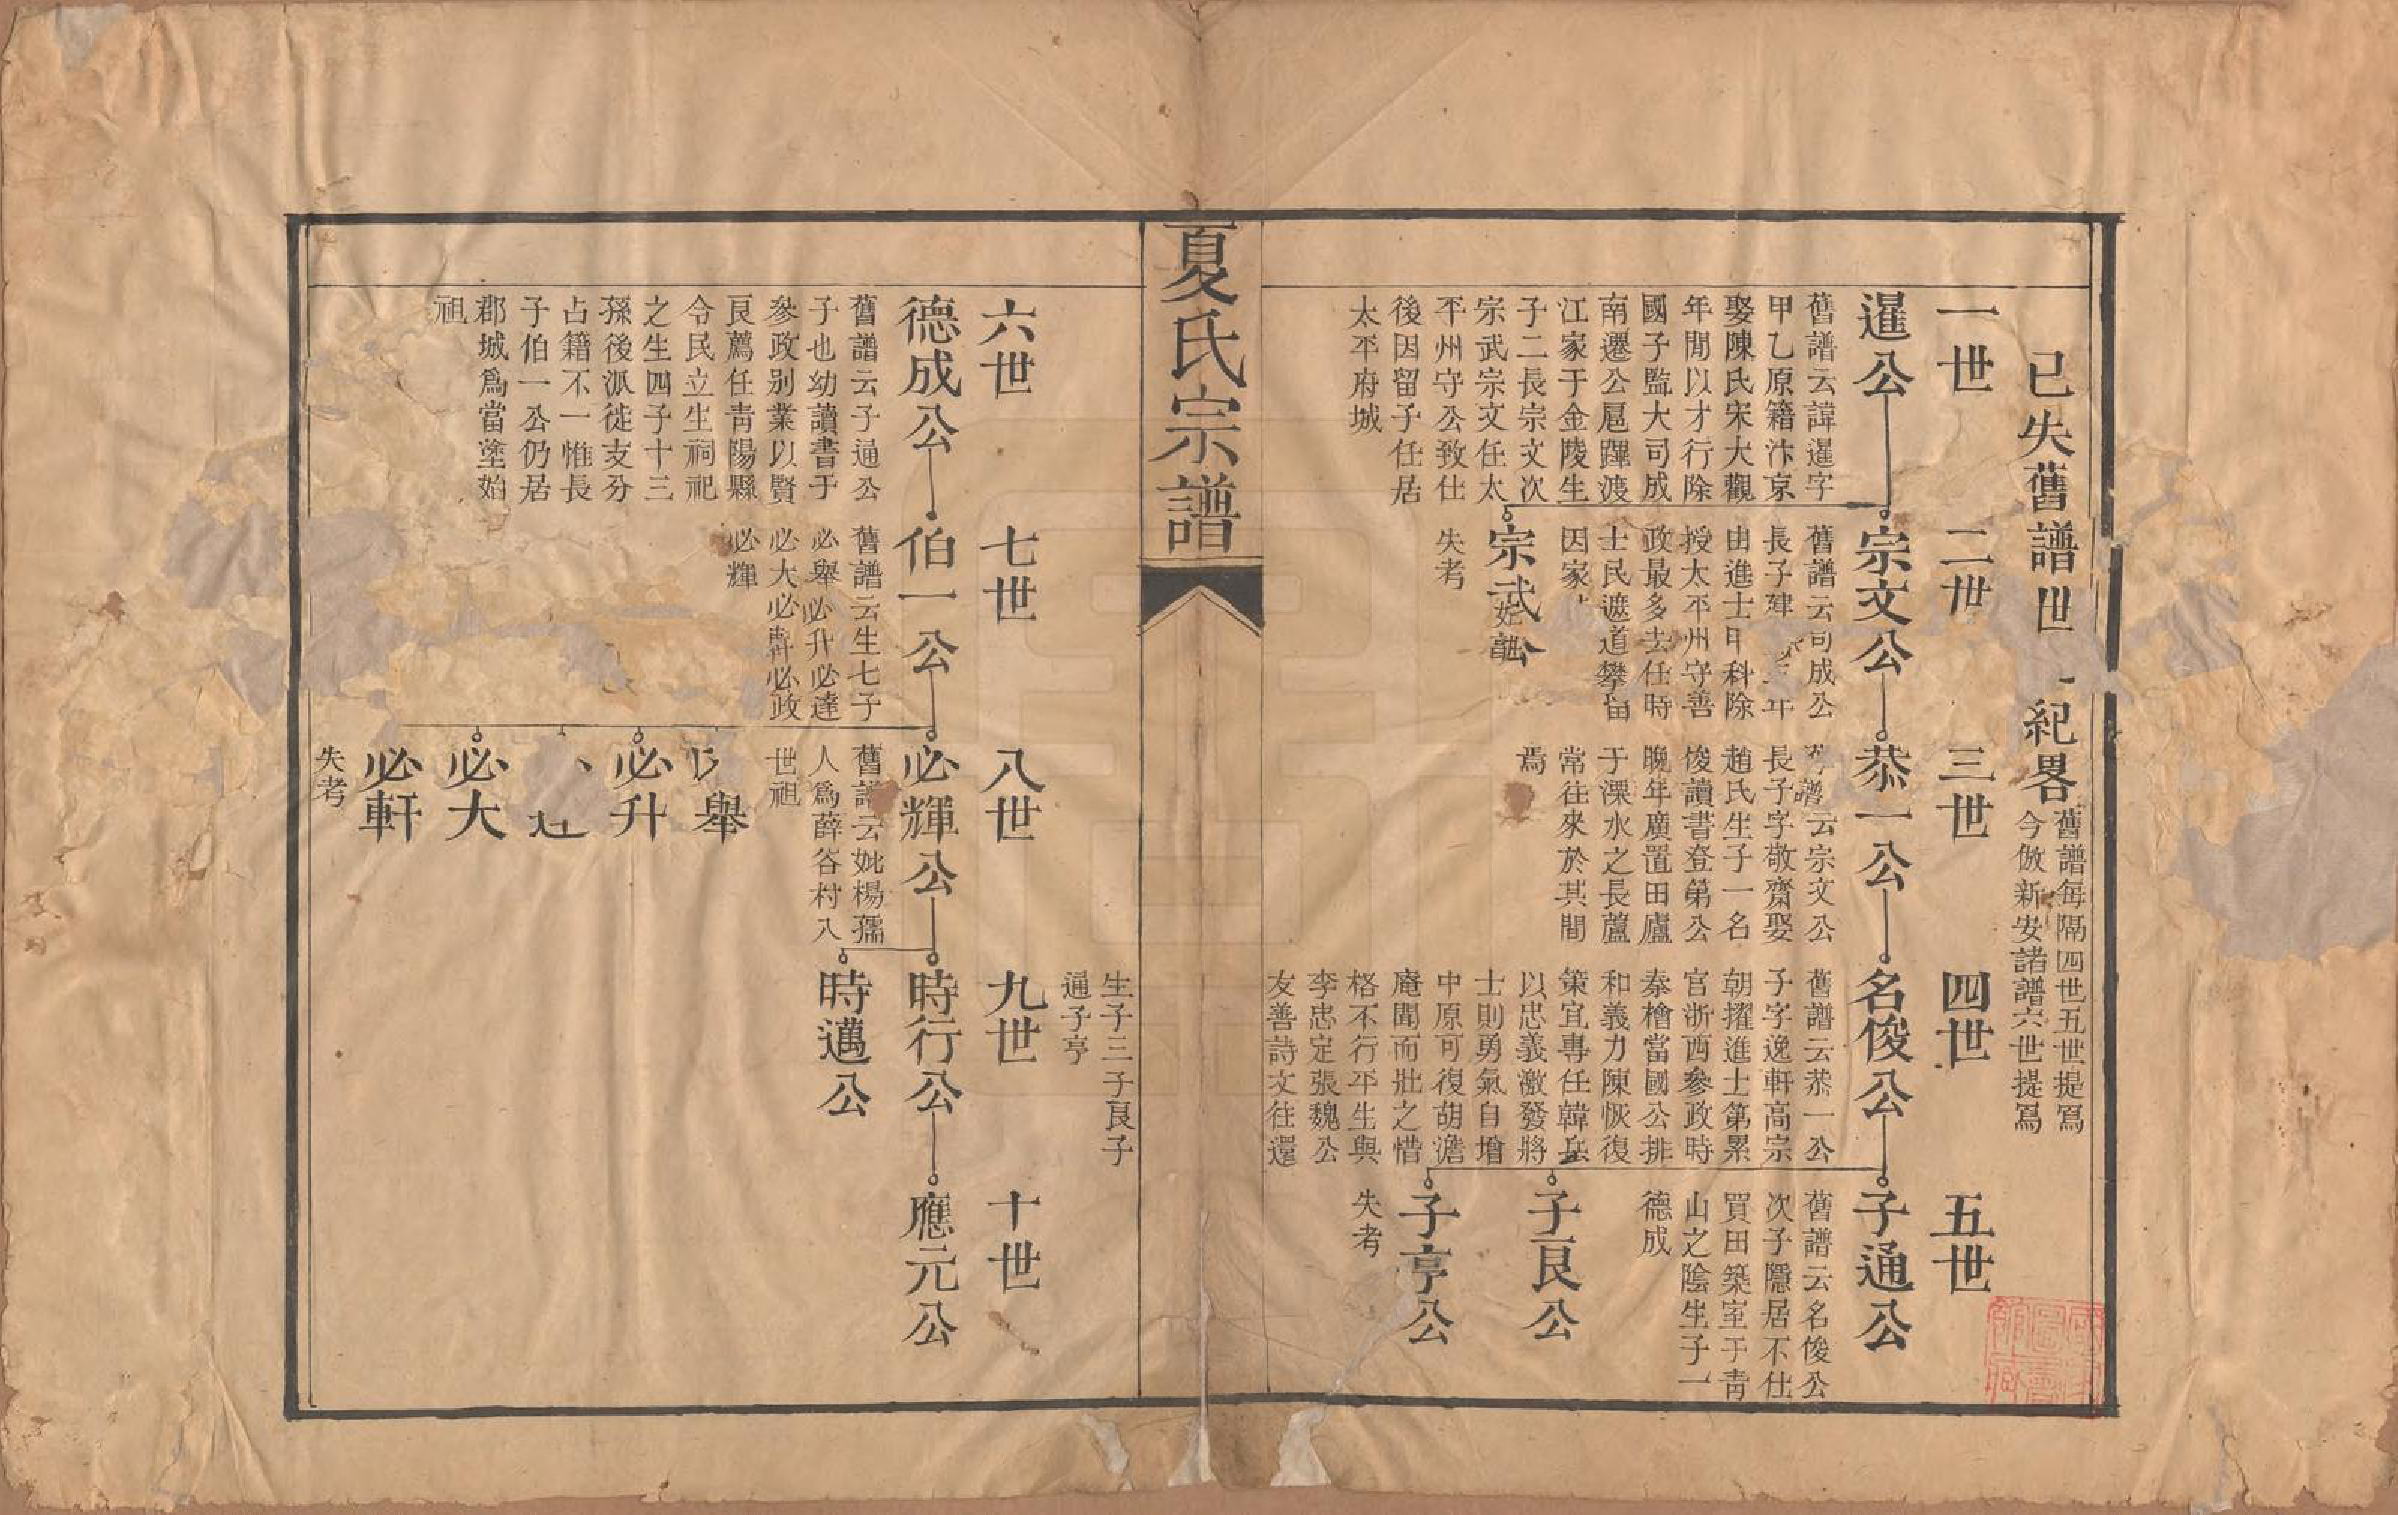 已失舊譜世 紀畧
舊譜每隔四世五世提寫
今倣新安諸譜六世提寫
一世
暹公
舊譜云諱暹字
甲乙原籍汴京
娶陳氏宋大觀
年閒以才行除
國子監大司成
南遷公扈蹕渡
江家于金陵生
子二長宗文次
宗武宗文任太
平州守公致仕
後因留子任居
太平府城
二世
宗文公
舊譜云司成公
長子建 年
由進士甲科除
授太平州守善
政最多去任時
士民遮道攀留
因家
宗武公
失考
三世
恭一公
舊譜云宗文公
長子字敬齋娶
趙氏生子一名
俊讀書登第公
晚年廣置田廬
于溧水之長蘆
常往來於其間
焉
四世
名俊公
舊譜云恭一公
子字逸軒高宗
朝擢進士第累
官浙西參政時
秦檜當國公排
和義力陳恢復
策宜專任韓岳
以忠義激發將
士則勇氣自增
中原可復胡澹
庵聞而壯之惜
格不行平生與
李忠定張魏公
友善詩文往還
生子三子良子
通子亨
五世
子通公
舊譜云名俊公
次子隱居不仕
買田築室于青
山之陰生子一
德成
子良公
子亨公
失考
夏氏宗譜
六世
德成公
舊譜云子通公
子也幼讀書于
參政别業以賢
良薦任青陽縣
令民立生祠祀
之生四子十三
孫後派徙支分
占籍不一惟長
子伯一公仍居
郡城爲當塗始
祖
七世
伯一公
舊譜云生七子
必舉必升必達
必大必軒必政
必輝
八世
必輝公
舊譜云妣楊孺
人爲薛谷村入
世祖
舉
必升
必大
必軒
失考
九世
時行公
時邁公
十世
應元公